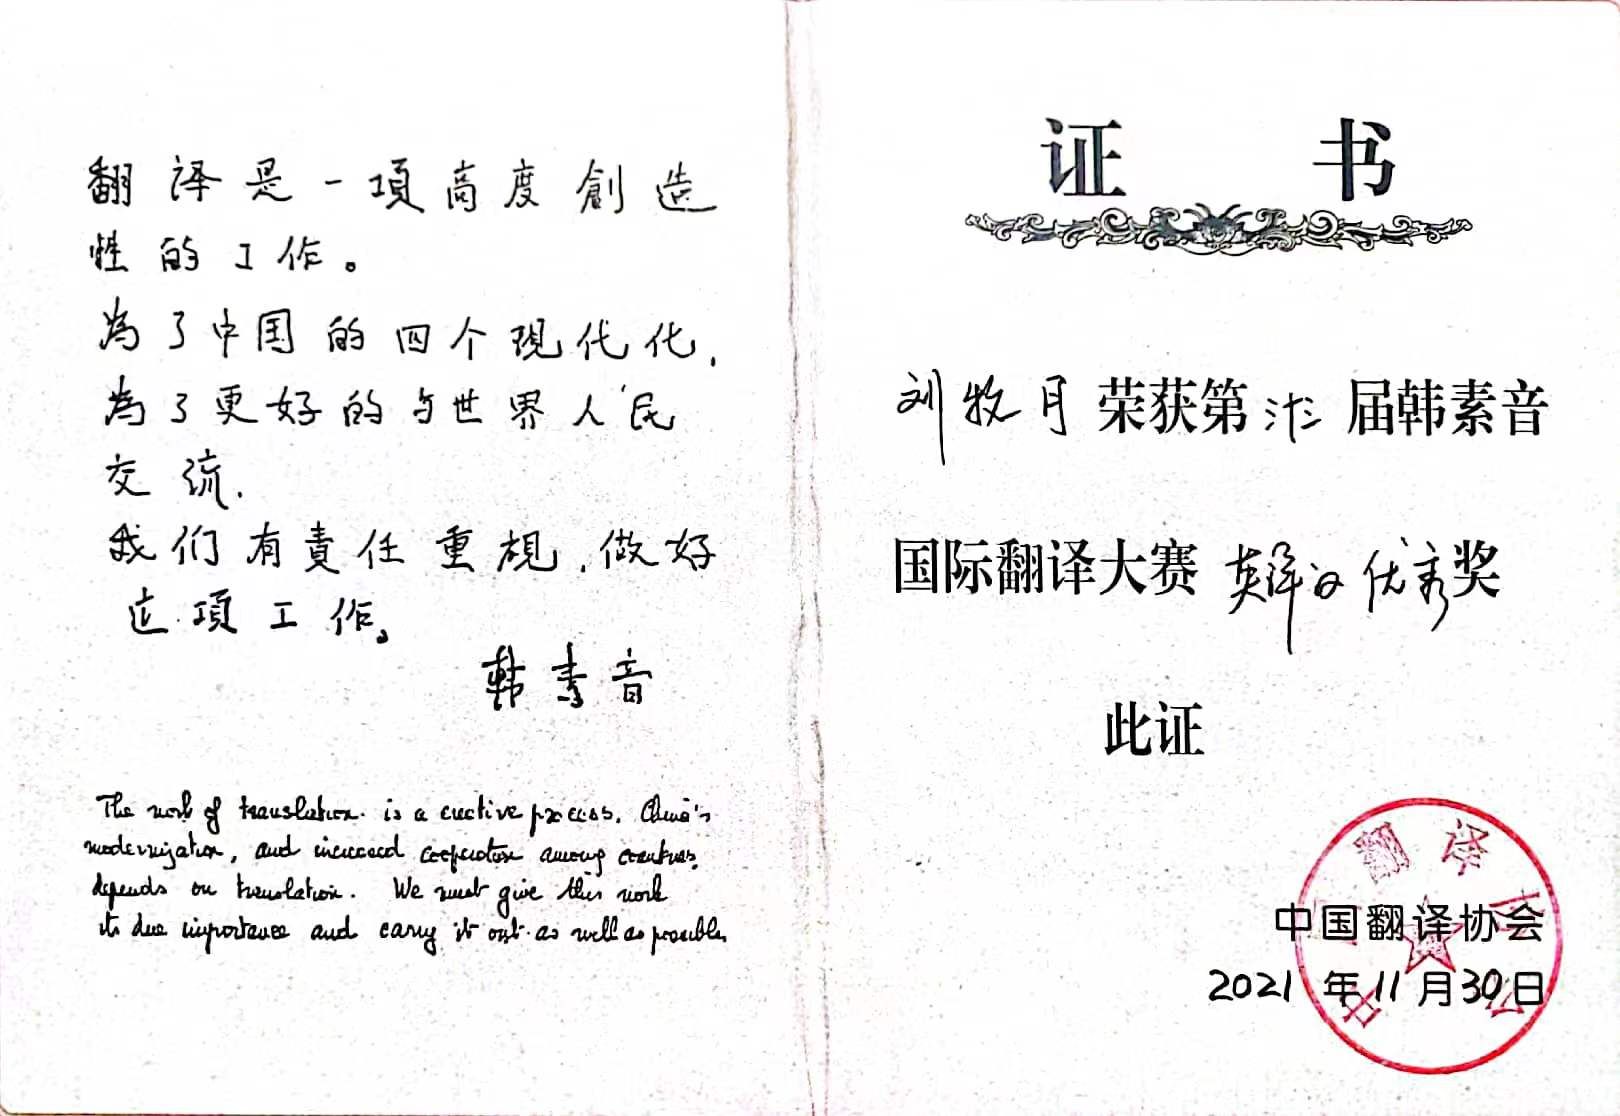 翻译是一項高度創造
性的工作。
為了中国的四个現代化,
為了更好的与世界人民
交流.
我们有責任重視,做好
这項工作。
韩素音
The work of translation is a creative process. China's
modernization, and increased cooperation among countries,
depends on translation. We must give this work
its due importance and carry it out as well as possible.
证 书
刘牧月 荣获第 届韩素音
国际翻译大赛 英译汉 优秀奖
此证
翻译协会
中国翻译协会
2021年11月30日